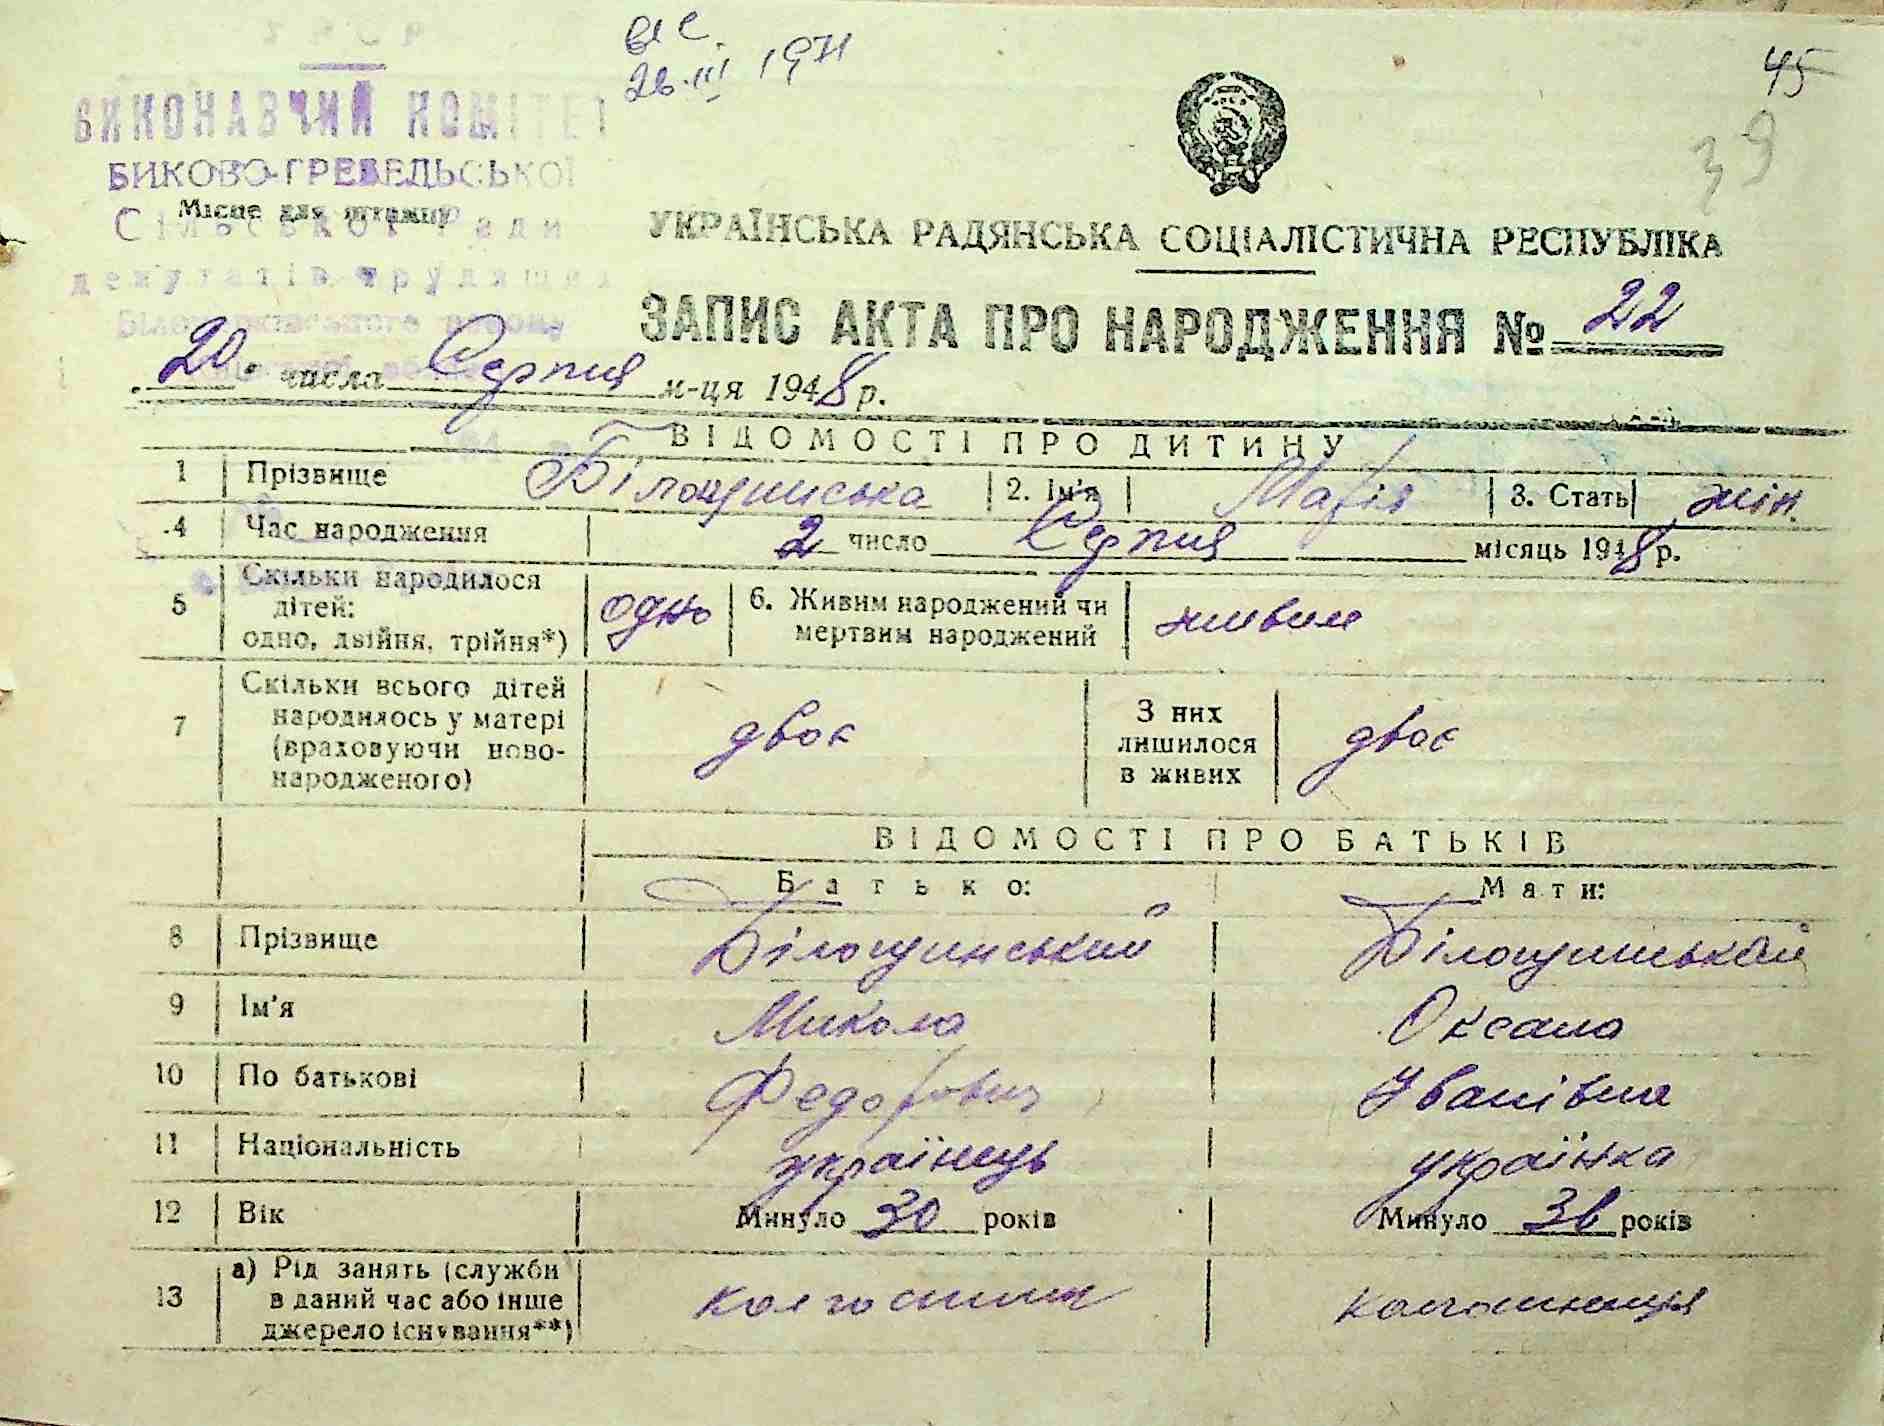 У Р С Р
ВИКОНАВЧИЙ КОМІТЕТ
БИКОВО-ГРЕБЕЛЬСЬКОЇ
Місце для штампу
Сільської Ради
депутатів трудящих
Білоцерківського району
26.III 1971
45
39
УКРАЇНСЬКА РАДЯНСЬКА СОЦІАЛІСТИЧНА РЕСПУБЛІКА
ЗАПИС АКТА ПРО НАРОДЖЕННЯ № 22
„20" числа Серпня м-ця 1948 р.
ВІДОМОСТІ ПРО ДИТИНУ
1 Прізвище Білощинська 2. Ім'я Марія 3. Стать жін.
4 Час народження 2 число Серпня місяць 1948 р.
5 Скільки народилося дітей: одно, двійня, трійня*) одно 6. Живим народжений чи мертвим народжений живим
7 Скільки всього дітей народилось у матері (враховуючи новонародженого) двоє З них лишилося в живих двоє
ВІДОМОСТІ ПРО БАТЬКІВ
Батько: Мати:
8 Прізвище Білощинський Білощинськая
9 Ім'я Микола Оксана
10 По батькові Федорович Іванівна
11 Національність українець українка
12 Вік Минуло 30 років Минуло років
13 а) Рід занять (служби в даний час або інше джерело існування**) колгоспник колгоспниця